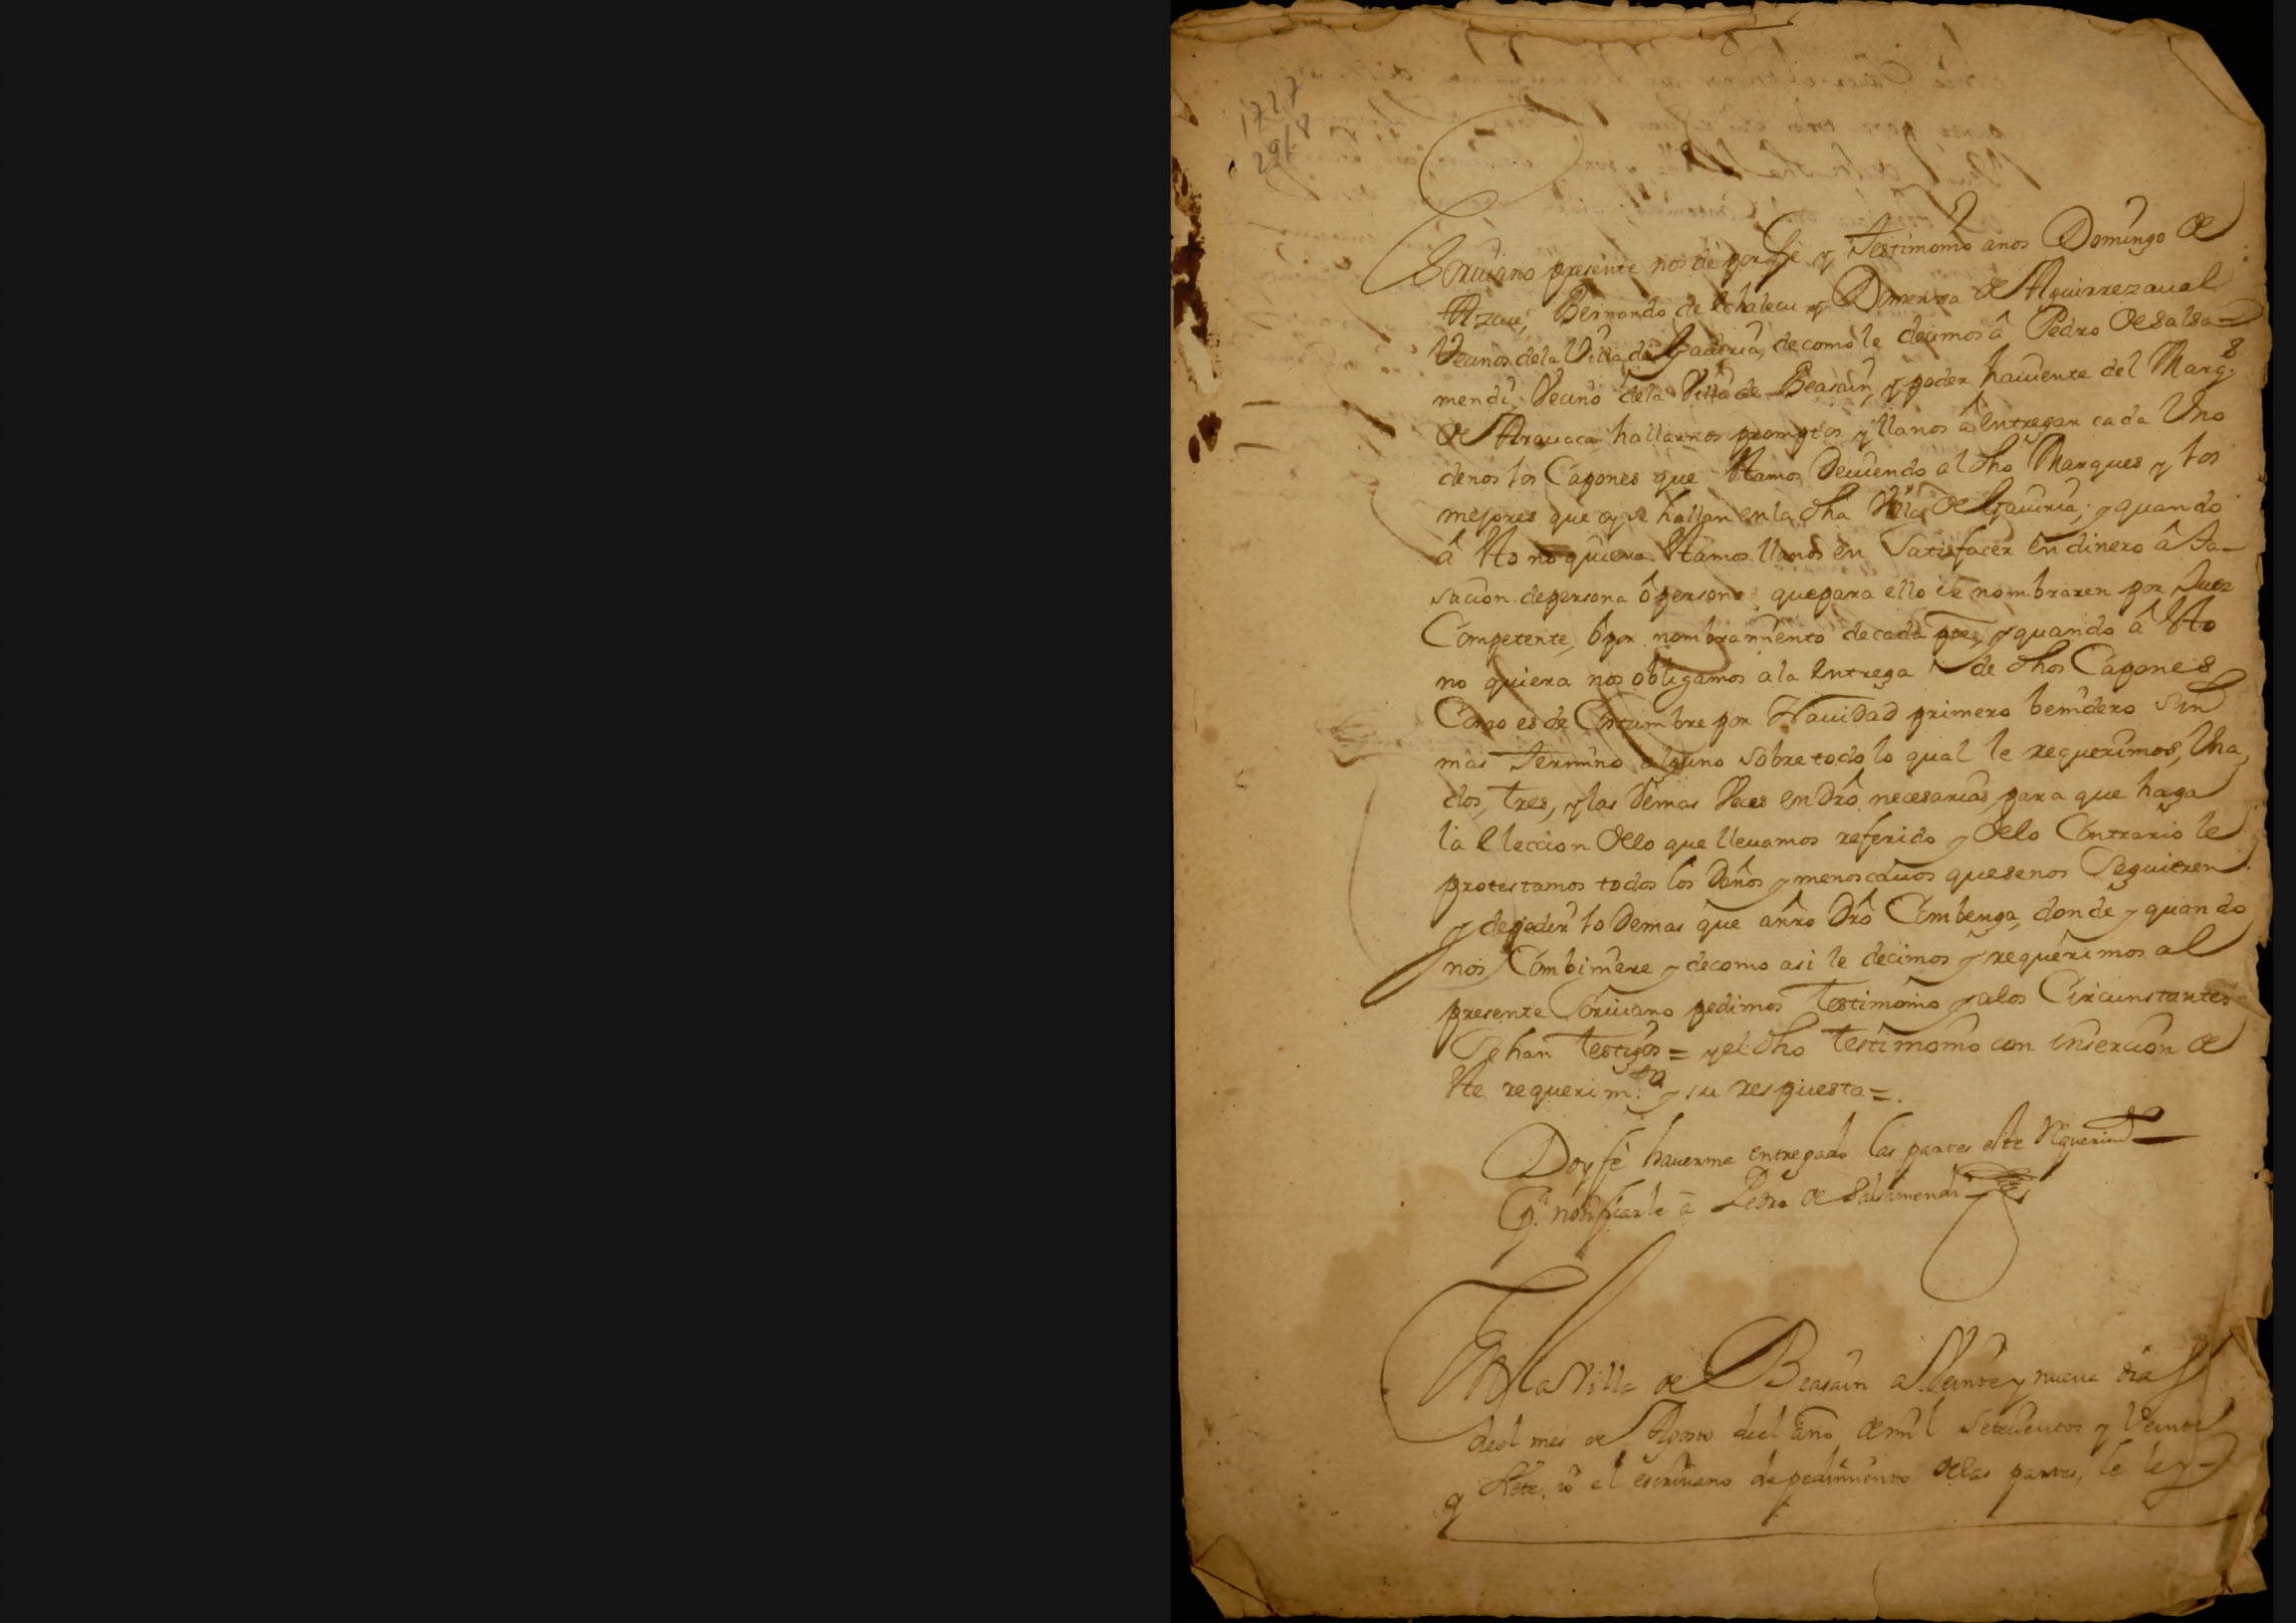 1727
29/8
Escriuano presente nos dé por fé y Testimonio anos Domingo de
Azcue, Bernardo de Echalecu y Domenja de Aguirrezaual
Vecinos dela Villa de Gauiria, decomo le decimos â Pedro de Salsa=
mendi, Vecino dela Villa de Beasain, y poder hauiente del Marq.s
de Arauaca hallarnos promptos y llanos â entregar cada Uno
denos los Capones que Estamos Deuiendo al dho Marques y los
mejores que oy se hallan en la dha Villa de Gauiria; y quando
â Esto no quiera Estamos llanos en Satisfacer en dinero â ta-
sacion depersona ô personas quepara ello se nombraren por Juez
Competente, ô por nombramiento decada pte, y quando â Esto
no quiera nos obligamos ala Entrega de dhos Capones
Como es de Costumbre por Nauidad primero benidero Sin
mas termino alguno sobre todo lo qual le requerimos, Una
dos, tres, y las Demas Veces en Drô necesarias, para que haga
la Eleccion delo que lleuamos referido y delo Contrario le
protestamos todos los Daños y menoscauos quesenos Seguieren
y depedir lo Demas que añro Drô Combenga, donde y quando
nos Combiniere y decomo asi le decimos y requerimos al
presente Escriuano pedimos Testimonio y alos Circunstantes
Sehan testigos = y el dho testimonio con insercion de
Este requerim.to y su respuesta =.
Doy fé hauerme entregado las partes este Requerim.to
p.a notificarle â Pedro de Salsamendi
En la Villa de Beasain a Veinte y nueue dias
del mes de Agosto del año de mil setecientos y Veinte
y siete, io el escriuano de pedimiento delas partes, le ley